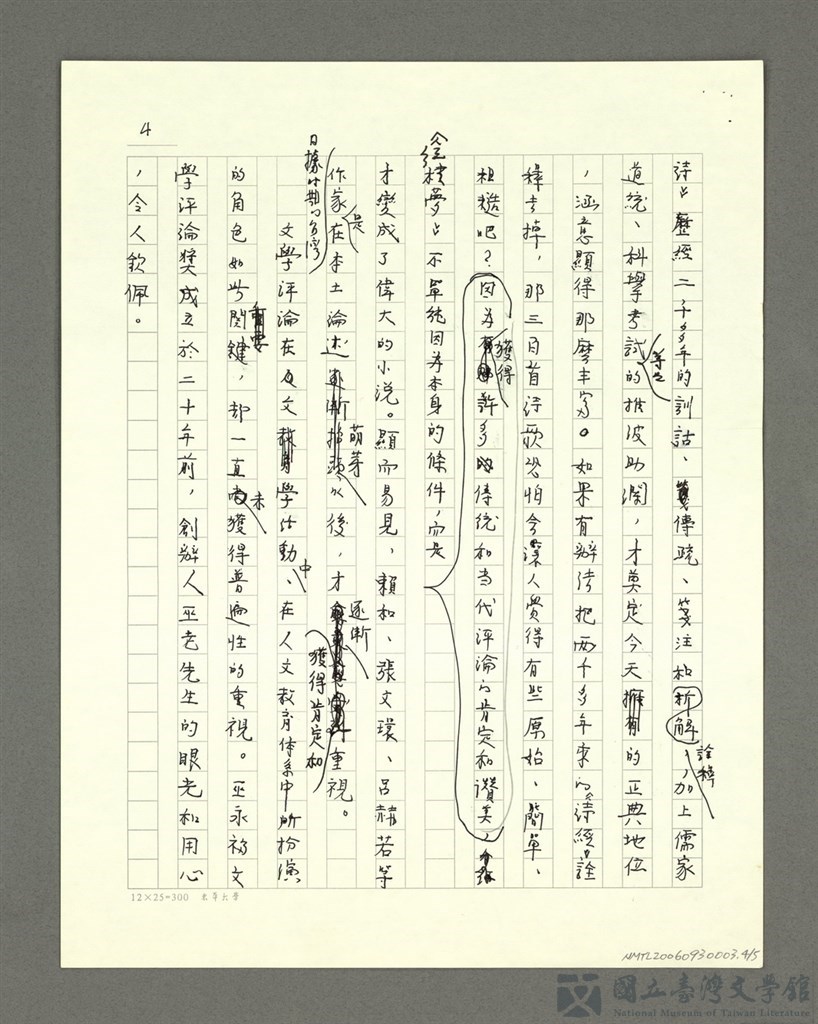 4
詩』歷經二千多年的訓詁、傳疏、箋注和新解、詮釋,加上儒家
道統、科學考試等等的推波助瀾,才奠定今天擁有的正典地位
,涵意顯得那麼丰富。如果有辦法把兩千多年來的『詩經』詮
釋去掉,那三百首詩歌恐怕令讓人覺得有些原始、簡單、
粗糙吧?因為獲得許多的傳統和当代評論的肯定和讚美,
紅樓夢』不單純因為本身的條件,而是
才變成了偉大的小說。顯而易見,賴和、張文環、呂赫若等
作家是在本土論述逐漸萌芽以後,才逐漸獲得肯定和重視。
日據時期的台灣
文學評論在人文教育學活動中、在人文教育体系中所扮演
的角色如此関鍵重要,却一直未獲得普遍性的重視。巫永福文
學評論獎成立於二十年前,創辦人巫老先生的眼光和用心
,令人欽佩。
12×25=300
NMTL20060930003.4/5
國立臺灣文學館
National Museum of Taiwan Literature